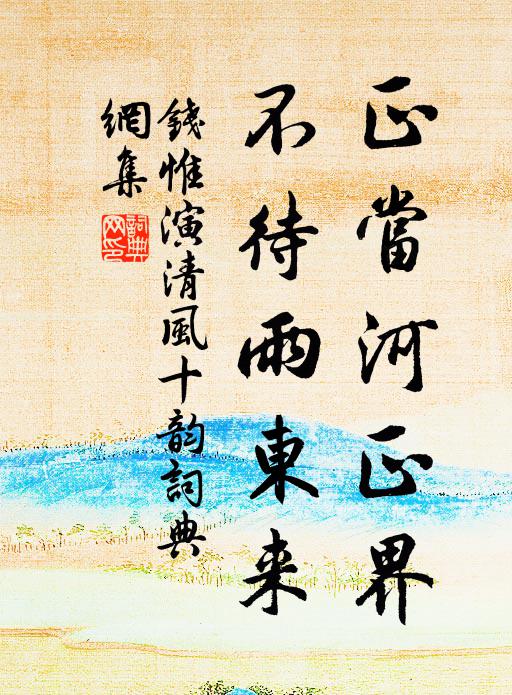 正當河正界
不待雨東来
錢惟演清風十韵詞典
網集
詞典網印